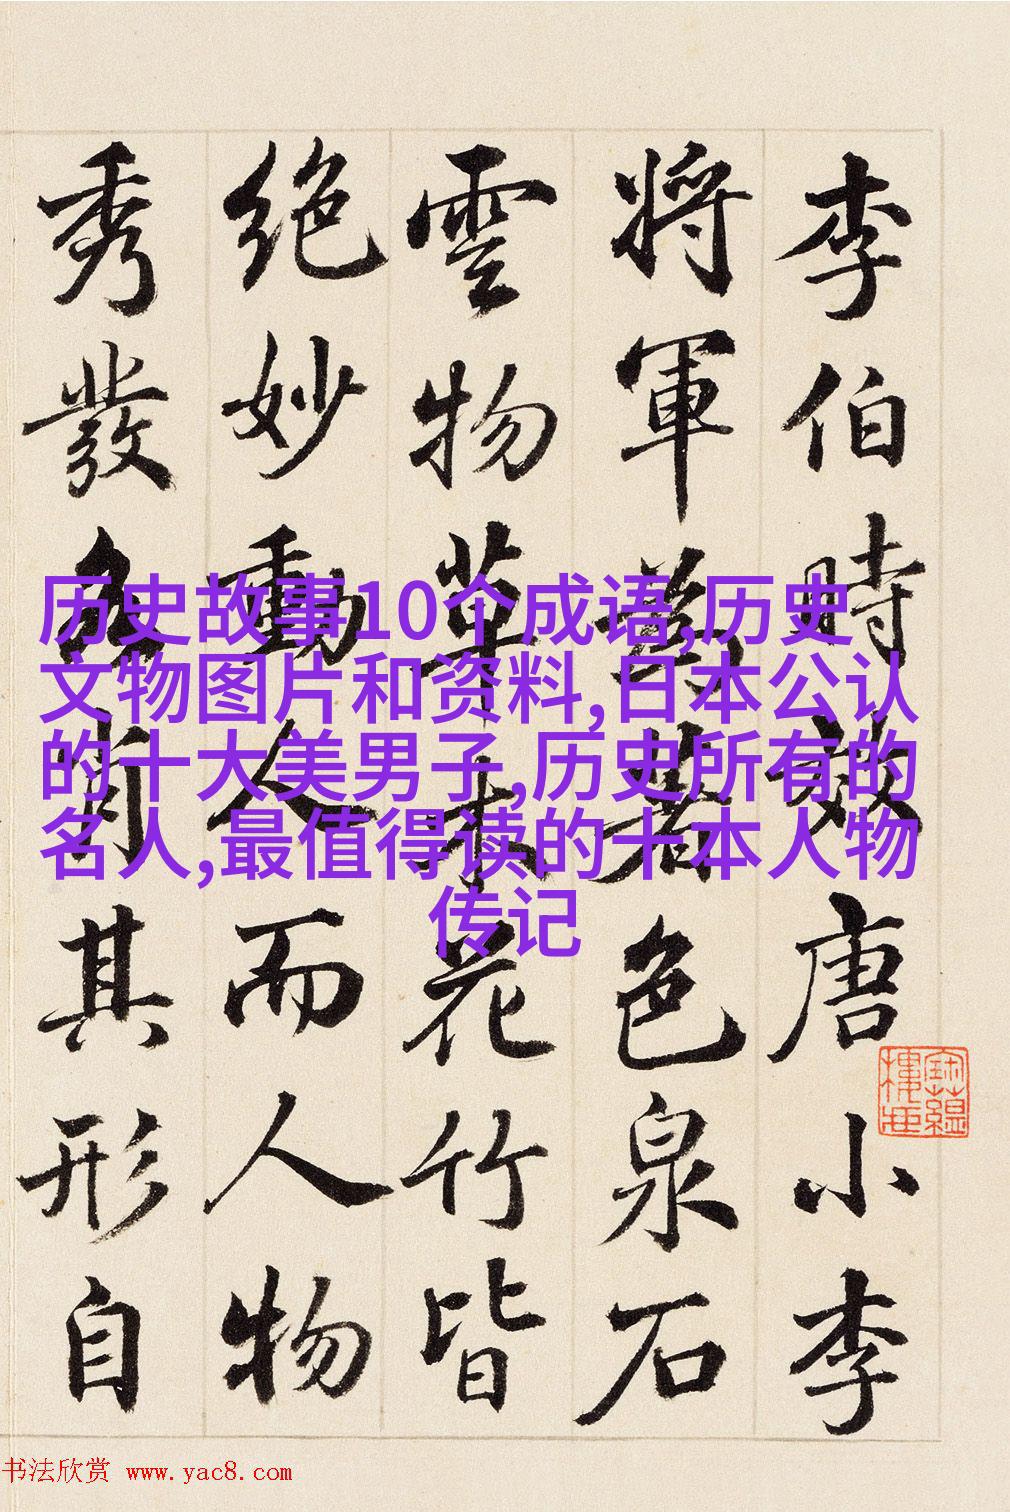 李伯時效唐小李
將軍為著色泉石
雲物草木花竹皆
絕妙動人而人物
秀發各肖其形自
历史故事10个成语,历史
文物图片和资料,日本公认
的十大美男子,历史所有的
名人,最值得读的十本人物
传记
寶蘊
樓
书法欣赏 www.yac8.com